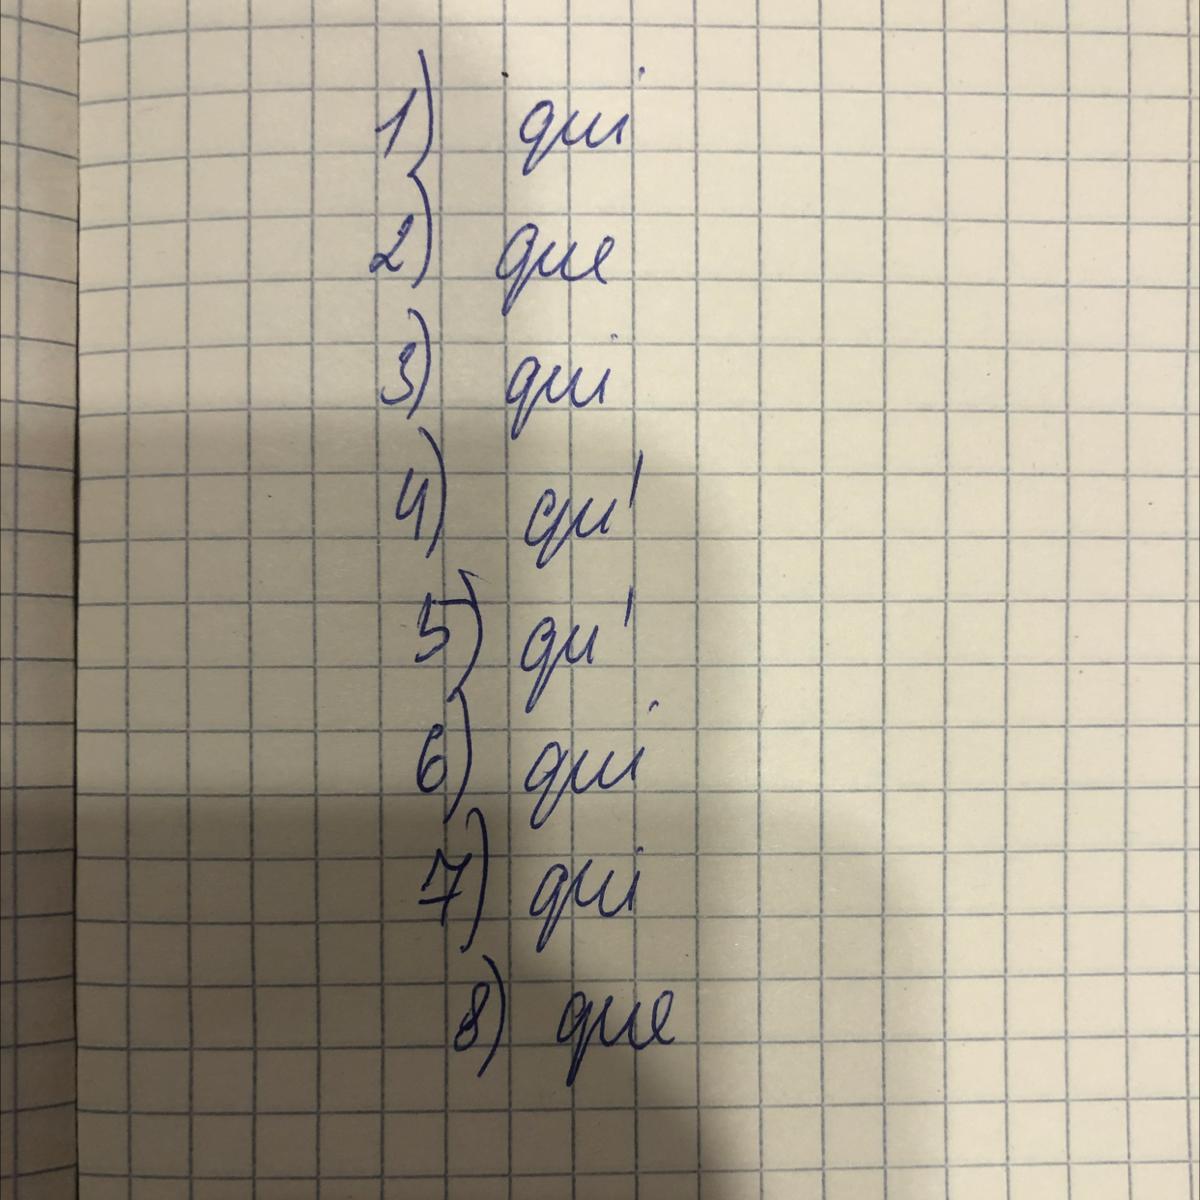 1) qui
2) que
3) qui
4) qu'
5) qu'
6) qui
7) qui
8) que